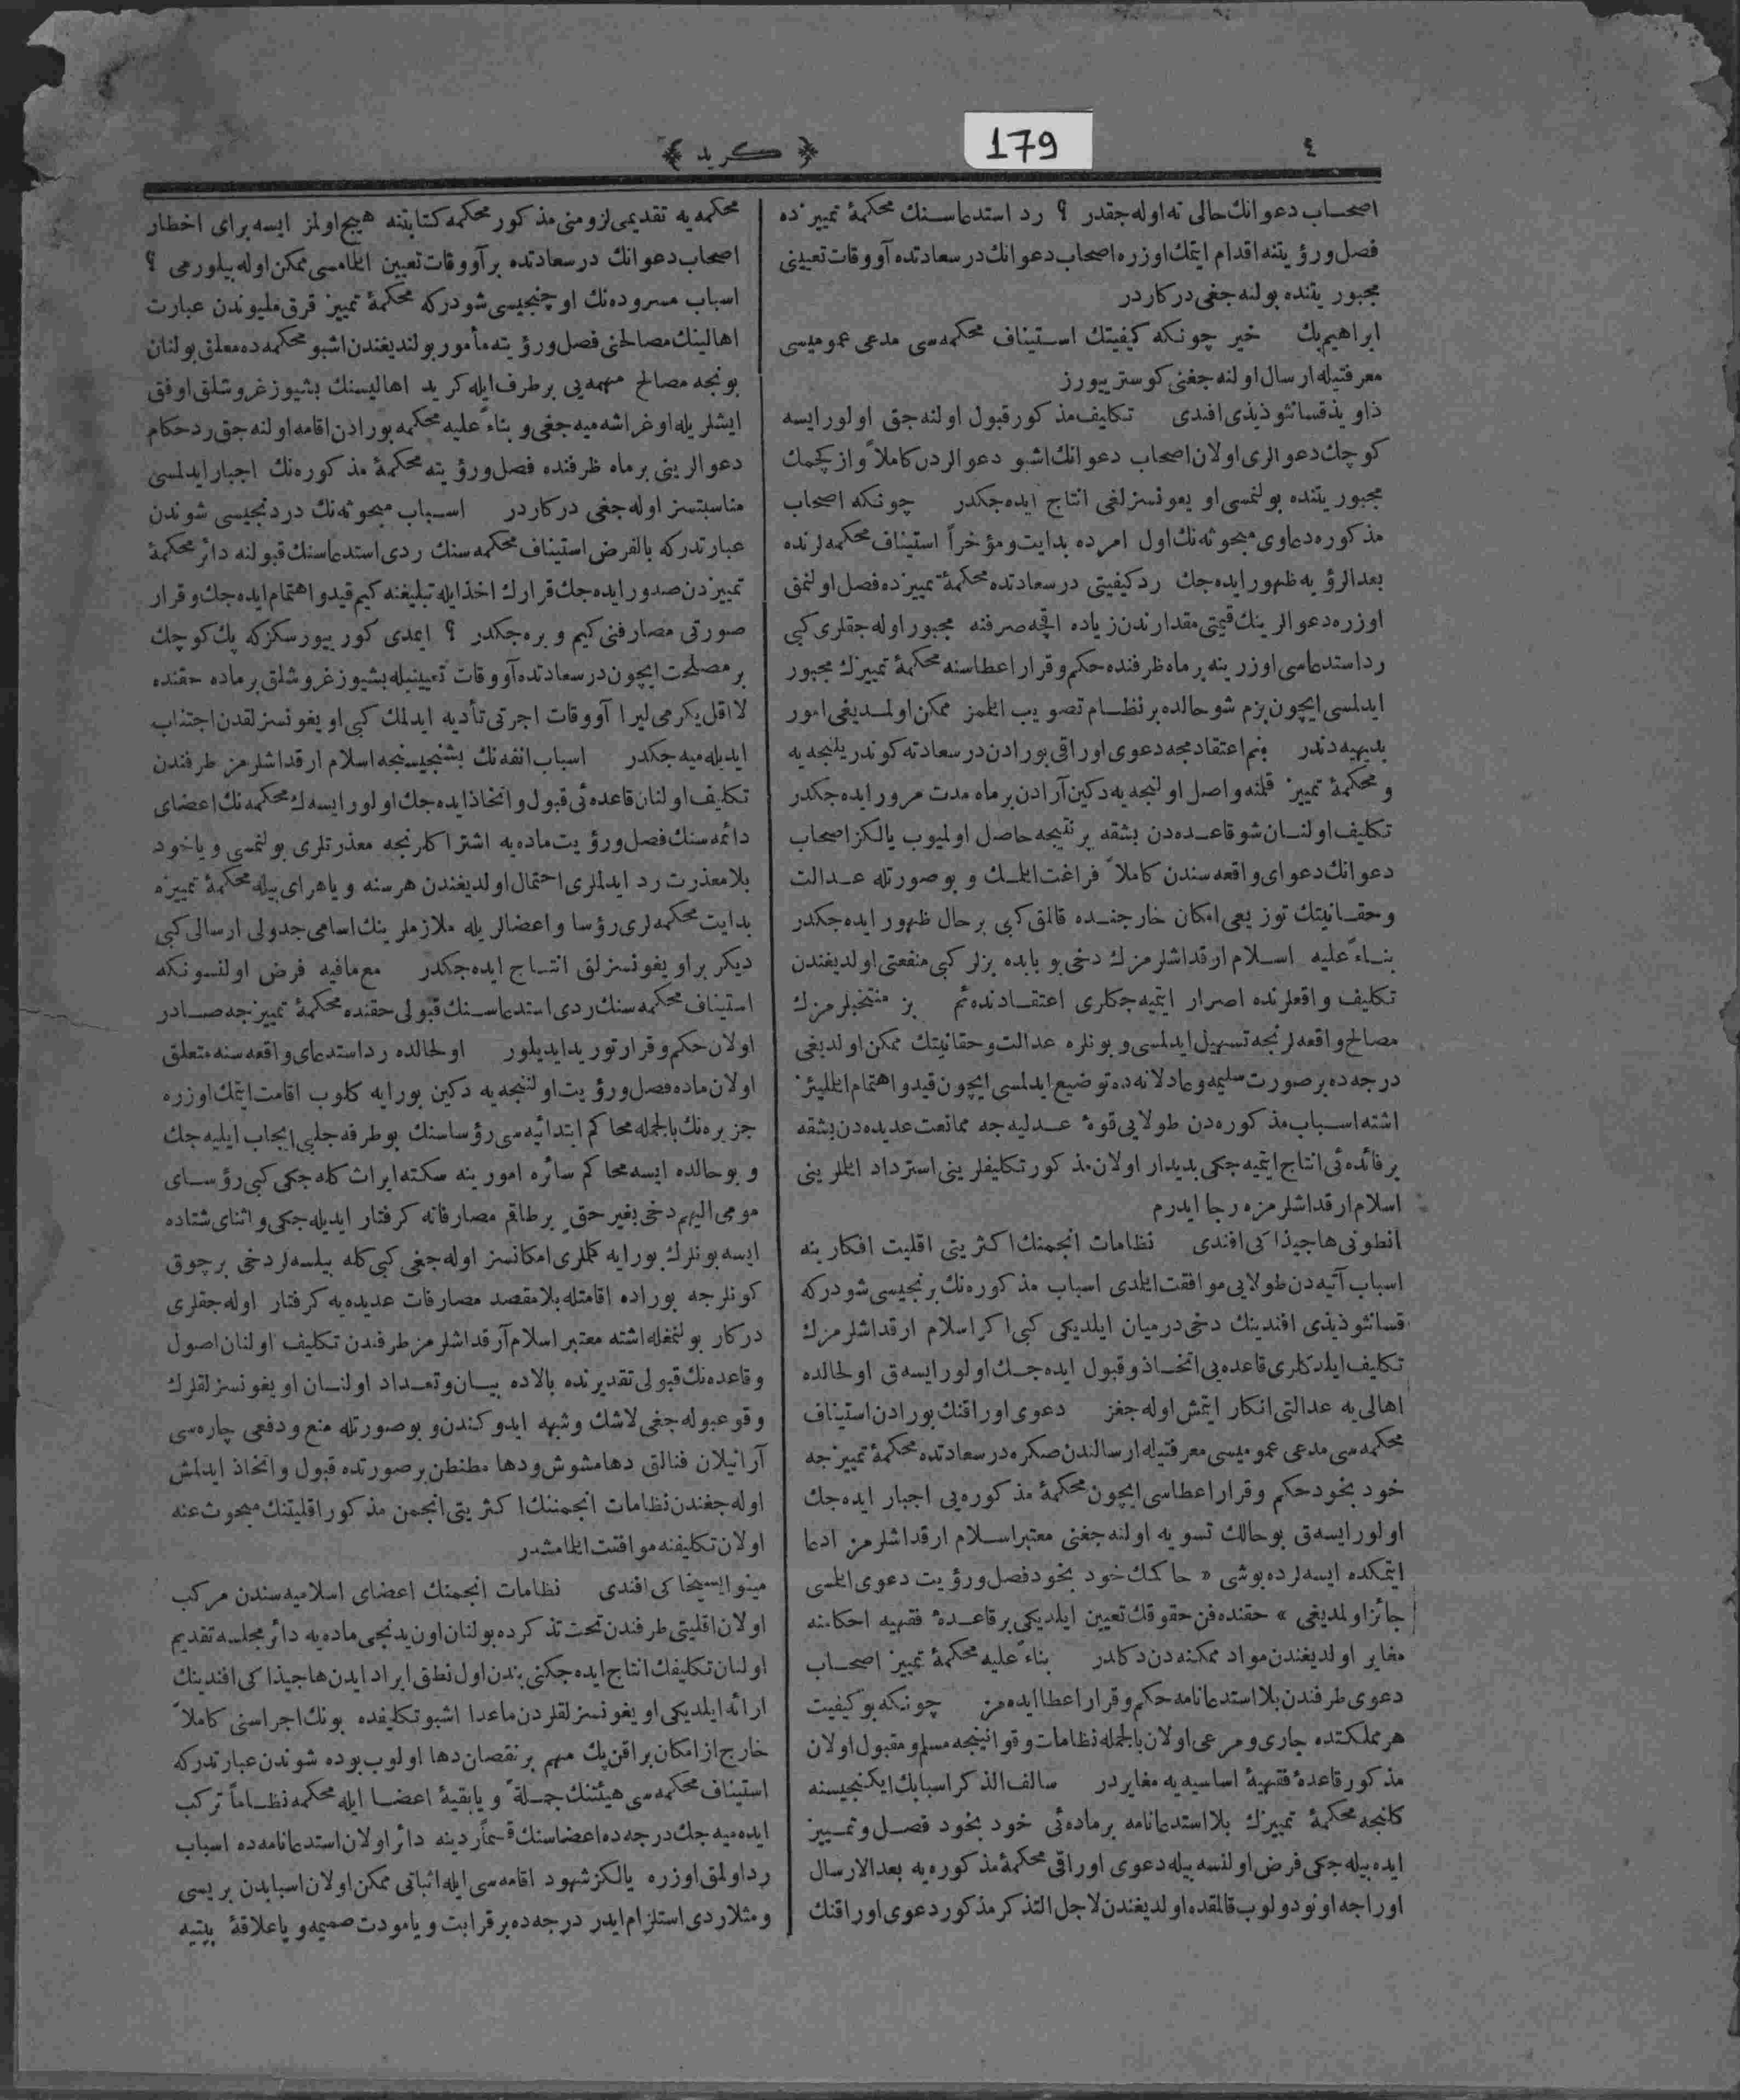 ٤
179
﴿ كريد ﴾
اصحاب دعوانك حالى نه اوله‌جقدر ؟ رد استدعاسنك محكمهٔ تمييزده
فصل ورؤيتنه اقدام ايتمك اوزره اصحاب دعوانك درسعادتده آووقات تعيينى
مجبوريتنده بولنه‌جغى دركاردر
ابراهيم بك خير چونكه كيفيتك استيناف محكمه‌سى مدعى عموميسى
معرفتيله ارسال اولنه‌جغنى كوستريیورز
تكليف مذكور قبول اولنه‌جق اولور ايسه
كوچك دعوالرى اولان اصحاب دعوانك اشبو دعوالردن كاملاً وازكچمك
مجبوريتنده بولنمسى اويغونسزلغى انتاج ايده‌جكدر چونكه اصحاب
مذكوره دعاوى مبحوثه‌نك اول امرده بدايت ومؤخراً استيناف محكمه‌لرنده
بعد الرؤيه ظهور ايده‌جك رد كيفيتى درسعادتده محكمهٔ تمييزده فصل اولنمق
اوزره دعوالرينك قيمتى مقدارندن زياده اقچه صرفنه مجبور اوله‌جقلرى كبى
رد استدعاسى اوزرينه بر ماه ظرفنده حكم وقرار اعطاسنه محكمهٔ تمييزك مجبور
ايدلمسى ايچون بزم شو حالده بر نظام تصويب ايتلمز ممكن اولمديغى امور
بديهيه‌دندر بنم اعتقادمجه دعوى اوراقى بورادن درسعادته كوندريلنجه‌يه
و محكمهٔ تمييز قلمنه واصل اولنجه‌يه دكين آرادن بر ماه مدت مرور ايده‌جكدر
تكليف اولنان شو قاعده‌دن بشقه بر نتيجه حاصل اولميوب يالكز اصحاب
دعوانك دعواى واقعه‌سندن كاملاً فراغت ايتلمك و بو صورتله عدالت
وحقانيتك توزيعى امكان خارجنده قالمق كبى بر حال ظهور ايده‌جكدر
بناءً عليه اسلام ارقداشلرمزك دخى بو بابده بزلر كبى منفعتى اولديغندن
تكليف واقعلرنده اصرار ايتميه‌جكلرى اعتقادنده‌ئم بز منتخبلرمزك
مصالح واقعه‌لرنجه تسهيل ايدلمسى و بونلره عدالت وحقانيتك ممكن اولديغى
درجه‌ده بر صورت سليمه وعادلانه‌ده توضيع ايدلمسى ايچون قيد واهتمام ايتلمليئز
اشته اسباب مذكوره‌دن طولايى قوهٔ عدليه‌جه ممانعت عديده‌دن بشقه
بر فائده‌ئى انتاج ايتميه‌جكى بديدار اولان مذكور تكليفلرينى استرداد ايتلمرينى
اسلام ارقداشلرمزه رجا ايدرم
انطونى هاجيذاكى افندى نظامات انجمنك اكثريتى اقليت افكارينه
اسباب آتيه‌دن طولايى موافقت ايتلمدى اسباب مذكوره‌نك برنجيسى شودركه
افندينك دخى درميان ايلديكى كبى اكر اسلام ارقداشلرمزك
تكليف ايلدكلرى قاعده‌يى اتخاذ وقبول ايده‌جك اولور ايسه‌ق اولحالده
اهالى‌يه عدالتى انكار ايتمش اوله‌جغز دعوى اوراقنك بورادن استيناف
محكمه‌سى مدعى عموميسى معرفتيله ارسالندن صكره درسعادتده محكمهٔ تمييزجه
خود بخود حكم وقرار اعطاسى ايچون محكمهٔ مذكوره‌يى اجبار ايده‌جك
اولور ايسه‌ق بو حالك تسويه اولنه‌جغنى معتبر اسلام ارقداشلرمز ادعا
ايتمكده ايسه‌لرده بوشى « حاكمك خود بخود فصل ورؤيت دعوى ايتلمسى
جائز اولمديغى » حقنده فن حقوقك تعيين ايلديكى بر قاعدهٔ فقهيه احكامنه
مغاير اولديغندن مواد ممكنه‌دن دكلدر بناءً عليه محكمهٔ تمييز اصحاب
دعوى طرفندن بلا استدعانامه حكم وقرار اعطا ايده‌مز چونكه بو كيفيت
هر مملكتده جارى ومرعى اولان بالجمله نظامات وقوانينجه مسلم ومقبول اولان
مذكور قاعدهٔ فقهيهٔ اساسيه‌يه مغايردر سالف الذكر اسبابك ايكنجيسنه
كلنجه محكمهٔ تمييزك بلا استدعانامه بر ماده‌ئى خود بخود فصل وتمييز
ايده‌بيله‌جكى فرض اولنسه بيله دعوى اوراقى محكمهٔ مذكوره‌يه بعد الارسال
اوراجه اونودولوب قالمقده اولديغندن لاجل التذكر مذكور دعوى اوراقنك
محكمه‌يه تقديمى لزومنى مذكور محكمه كتابتنه هيچ اولمز ايسه براى اخطار
اصحاب دعوانك درسعادتده بر آووقات تعيين ايتلممسى ممكن اوله‌بيلورمى ؟
اسباب مسروده‌نك اوچنجيسى شودركه محكمهٔ تمييز قرق مليوندن عبارت
اهالينك مصالحنى فصل ورؤيته مأمور بولنديغندن اشبو محكمه‌ده معلق بولنان
بونجه مصالح مهمه‌يى بر طرف ايله كريد اهاليسنك بشيوز غروشلق اوفق
ايشلريله اوغراشه‌ميه‌جغى و بناءً عليه محكمه بورادن اقامه اولنه‌جق رد حكام
دعوالرينى بر ماه ظرفنده فصل ورؤيته محكمهٔ مذكوره‌نك اجبار ايدلمسى
مناسبتسز اوله‌جغى دركاردر اسباب مبحوثه‌نك دردنجيسى شوندن
عبارتدركه بالفرض استيناف محكمه‌سنك ردى استدعاسنك قبولنه دائر محكمهٔ
تمييزدن صدور ايده‌جك قرارك اخذ ايله تبليغنه كيم قيد واهتمام ايده‌جك وقرار
صورتى مصارفنى كيم ويره‌جكدر ؟ ايمدى كوريیورسكزكه پك كوچك
بر مصلحت ايچون درسعادتده آووقات تعيينيله بشيوز غروشلق بر ماده حقنده
لااقل يكرمى ليرا آووقات اجرتى تأديه ايدلمك كبى اويغونسزلقدن اجتناب
ايديله‌ميه‌جكدر اسباب انفه‌نك بشنجيسنجه اسلام ارقداشلرمز طرفندن
تكليف اولنان قاعده‌ئى قبول واتخاذ ايده‌جك اولور ايسه‌ك محكمه‌نك اعضاى
دائمه‌سنك فصل ورؤيت ماده‌يه اشتراكلرنجه معذرتلرى بولنمسى وياخود
بلا معذرت رد ايدلملرى احتمال اولديغندن هر سنه وياهر اى بيله محكمهٔ تمييزه
بدايت محكمه‌لرى رؤسا واعضالريله ملازملرينك اسامى جدولى ارسالى كبى
ديكر بر اويغونسزلق انتاج ايده‌جكدر مع‌مافيه فرض اولنسونكه
استيناف محكمه‌سنك ردى استدعاسنك قبولى حقنده محكمهٔ تمييزجه صادر
اولان حكم وقرار توريد ايديلور اولحالده رد استدعاى واقعه‌سنه متعلق
اولان ماده فصل ورؤيت اولننجه‌يه دكين بورايه كلوب اقامت ايتمك اوزره
جزيره‌نك بالجمله محاكم ابتدائيه‌سى رؤساسنك بو طرفه جلبى ايجاب ايليه‌جك
و بو حالده ايسه محاكم سائره امورينه سكته ايراث كله‌جكى كبى رؤساى
مومى اليهم دخى بغير حق بر طاقم مصارفاته كرفتار ايديله‌جكى واثناى شتاده
ايسه بونلرك بورايه كلملرى امكانسز اوله‌جغى كبى كله بيلسه‌لر دخى بر چوق
كونلرجه بوراده اقامتله بلا مقصد مصارفات عديده‌يه كرفتار اوله‌جقلرى
دركار بولنمغله اشته معتبر اسلام آرقداشلرمز طرفندن تكليف اولنان اصول
وقاعده‌نك قبولى تقديرنده بالاده بيان وتعداد اولنان اويغونسزلقلرك
وقوعبوله‌جغى لاشك وشبهه ايدوكندن و بو صورتله منع ودفعى چاره‌سى
آرانيلان فنالق دها مشوش ودها مطنطن بر صورتده قبول واتخاذ ايدلمش
اوله‌جغندن نظامات انجمننك اكثريتى انجمن مذكور اقليتنك مبحوث عنه
اولان تكليفنه موافقت ايتلمامشدر
افندى نظامات انجمنك اعضاى اسلاميه‌سندن مركب
اولان اقليتى طرفندن تحت تذكرده بولنان اون يدنجى ماده‌يه دائر مجلسه تقديم
اولنان تكليفك انتاج ايده‌جكنى بندن اول نطق ايراد ايدن هاجيذاكى افندينك
ارائه ايلديكى اويغونسزلقلردن ماعدا اشبو تكليفده بونك اجراسنى كاملاً
خارج از امكان براقن پك مهم بر نقصان دها اولوب بوده شوندن عبارتدركه
استيناف محكمه‌سى هيئتنك جملةً و يا بقيهٔ اعضا ايله محكمه نظاماً تركب
ايده‌ميه‌جك درجه‌ده اعضاسنك قسماً ردينه دائر اولان استدعانامه‌ده اسباب
رد اولمق اوزره يالكز شهود اقامه‌سى ايله اثباتى ممكن اولان اسبابدن بريسى
ومثلا ردى استلزام ايدر درجه‌ده بر قرابت ويا مودت صميمه ويا علاقهٔ بيتيه